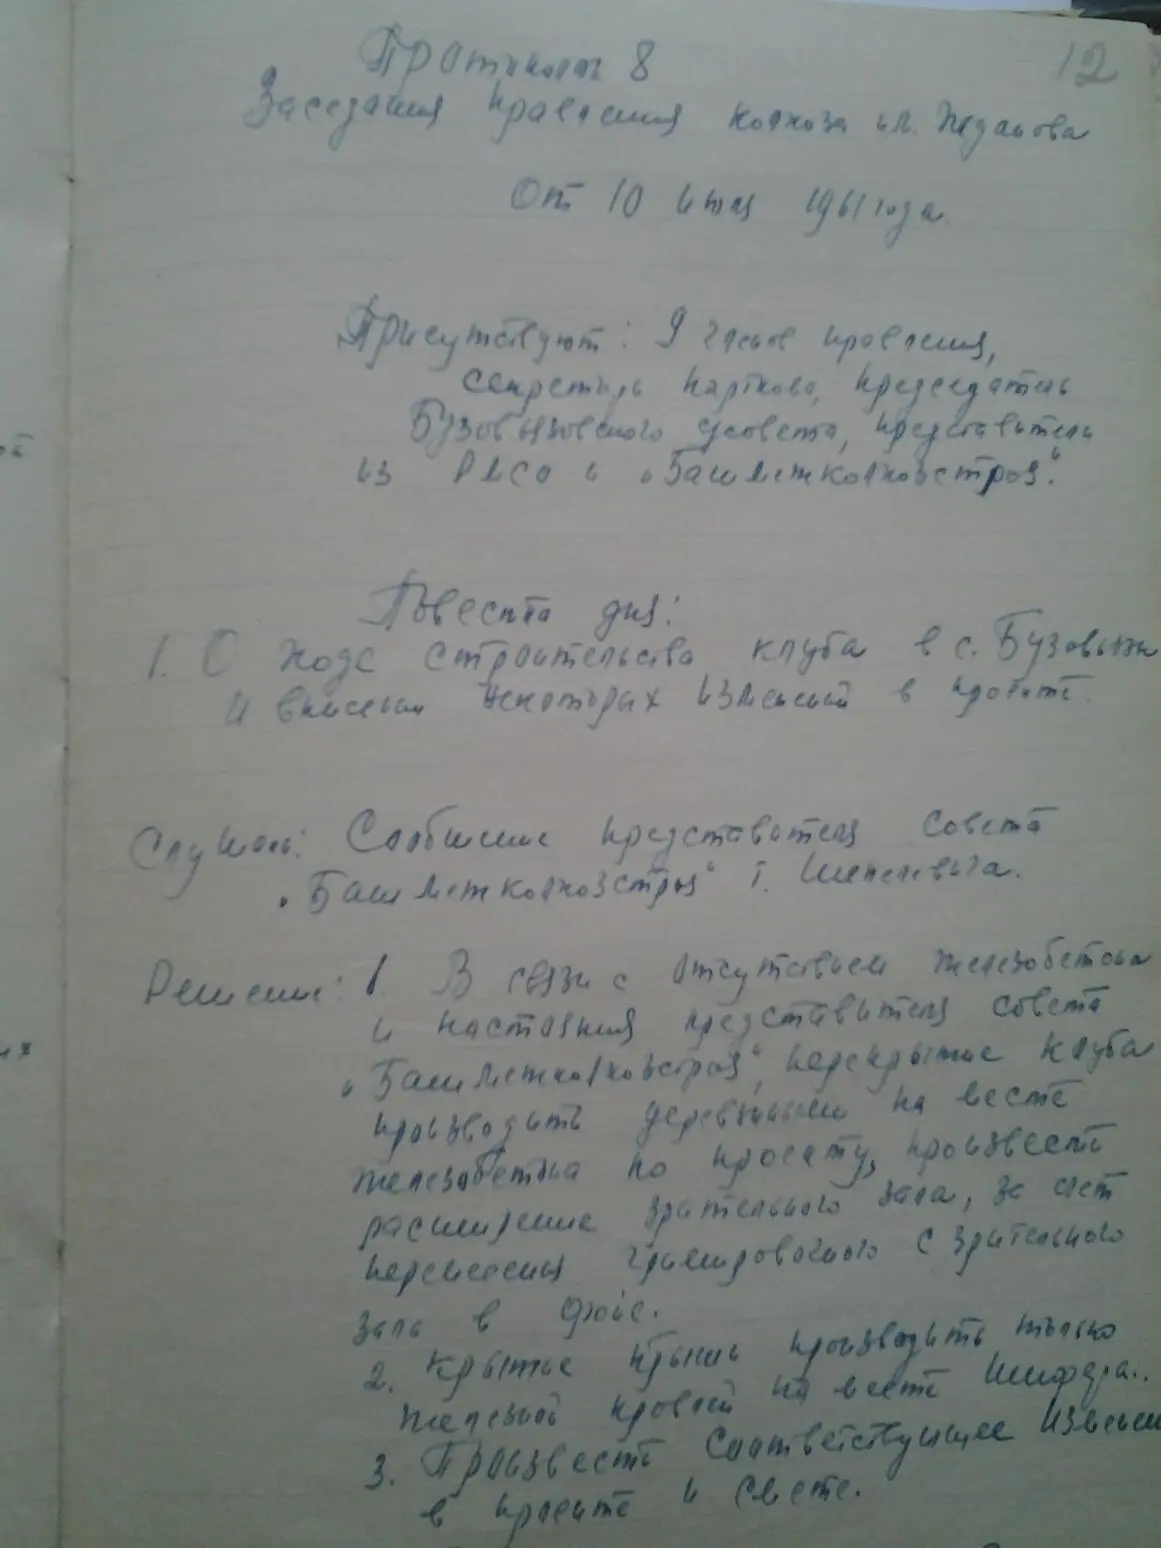 Протокол 8
12
Заседания правления колхоза им. Жданова
От 10 1961 года.
Присутствуют: 9 членов правления,
секретарь парткома, председатель
Бузовьязовского с/совета, представители
из РМСО и „Башмежколхозстроя".
Повестка дня:
1. О ходе строительства клуба в с. Бузовьязы
и внесении некоторых изменений в проекте.
Слушали: Сообщение представителя совета
„Башмежколхозстроя" т. Шепелевича.
Решение: 1. В связи с отсутствием железобетона
и настояния представителя совета
„Башмежколхозстроя", перекрытие клуба
производить деревянными на месте
железобетона по проекту, произвести
расширение зрительного зала, за счет
перенесения гримировочного с зрительного
зала в фойе.
2. Крытье крыши производить только
железной кровлей на месте шифера.
3. Произвести соответствующее изменен
в проекте и смете.